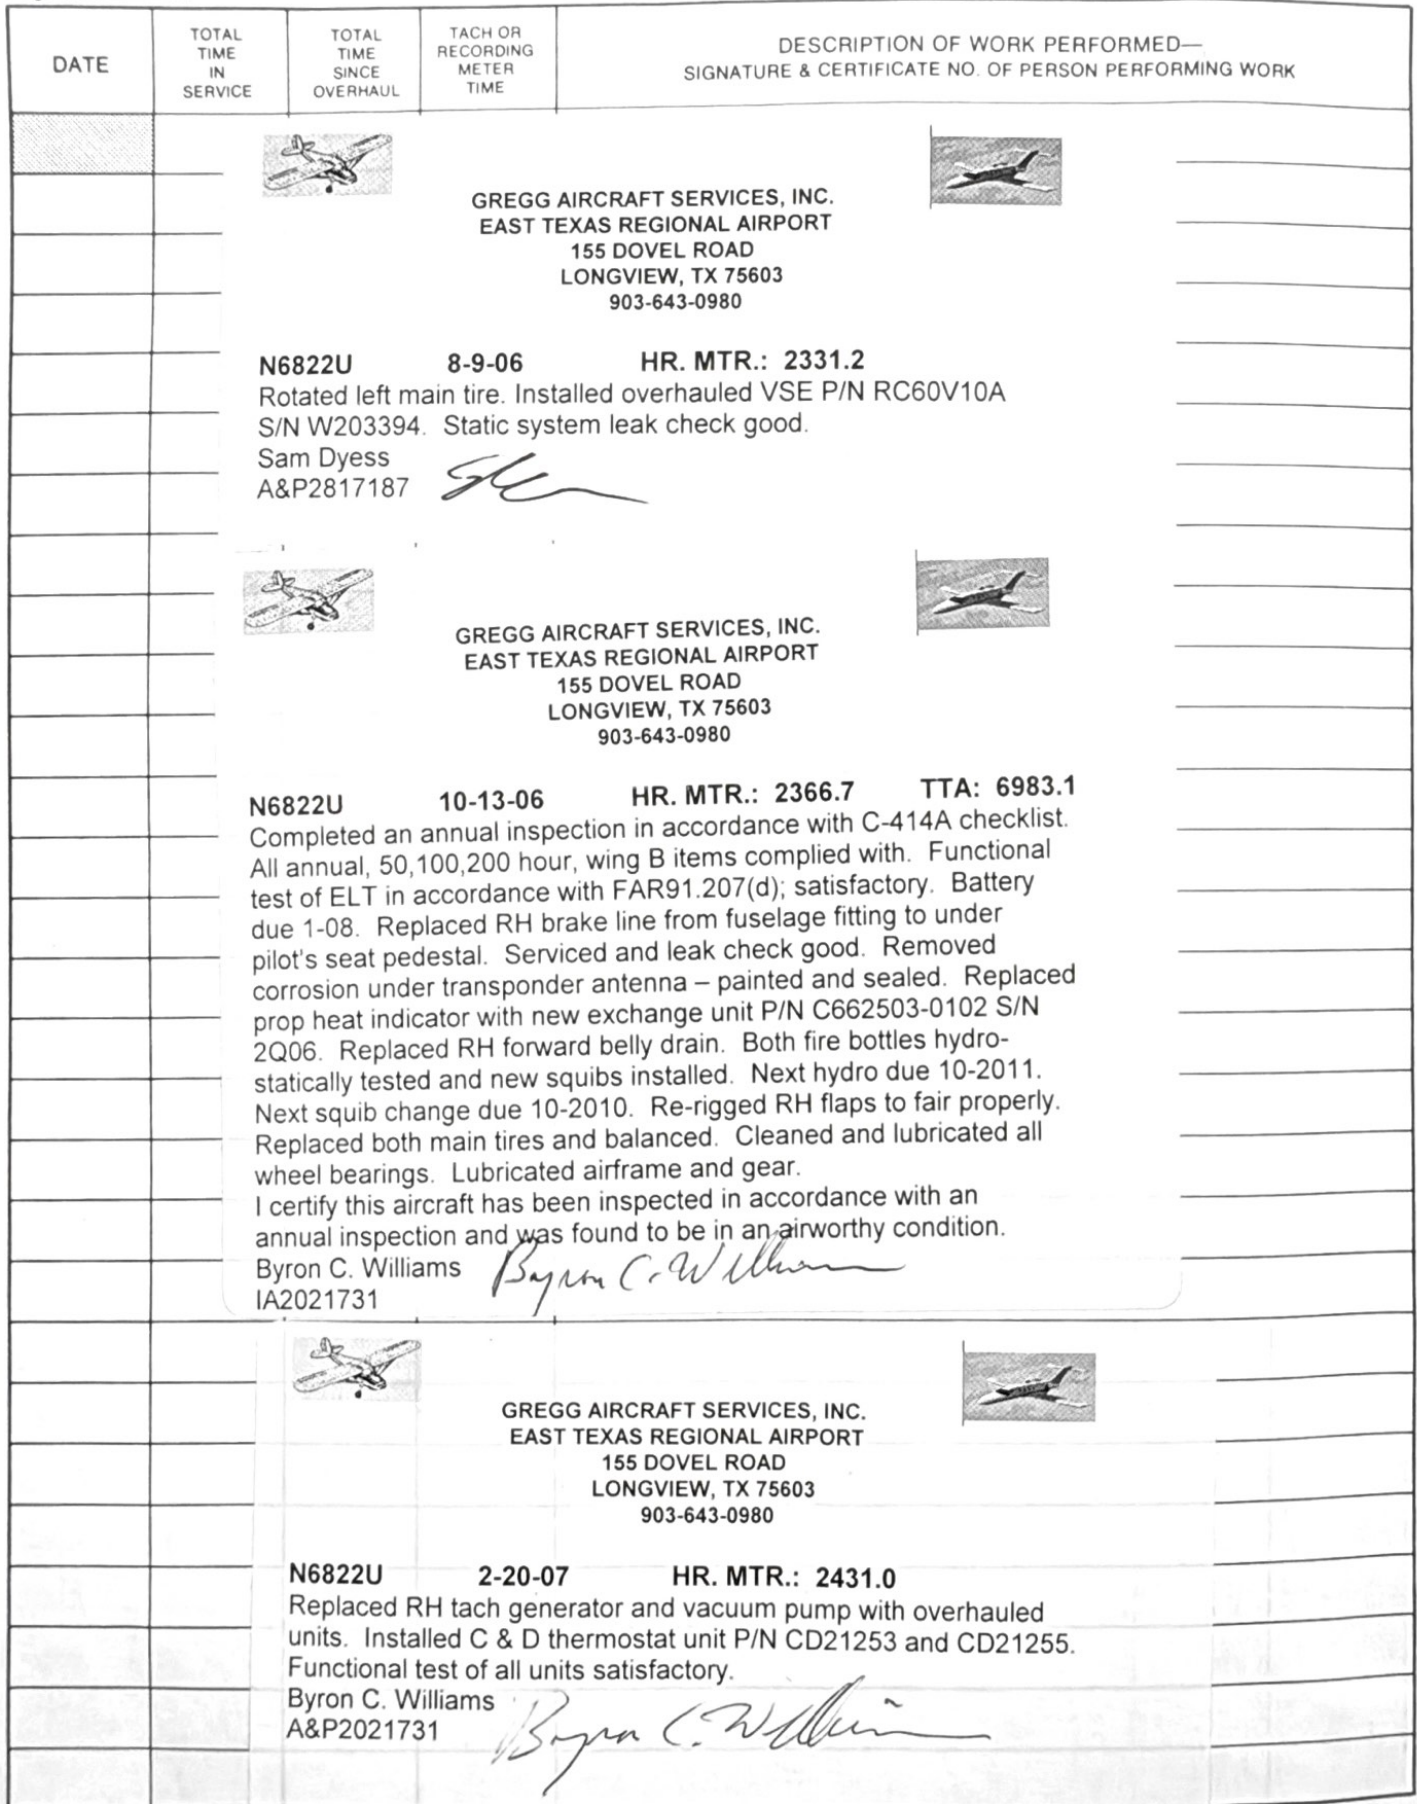 DATE
TOTAL
TIME
IN
SERVICE
TOTAL
TIME
SINCE
OVERHAUL
TACH OR
RECORDING
METER
TIME
DESCRIPTION OF WORK PERFORMED—
SIGNATURE & CERTIFICATE NO. OF PERSON PERFORMING WORK
GREGG AIRCRAFT SERVICES, INC.
EAST TEXAS REGIONAL AIRPORT
155 DOVEL ROAD
LONGVIEW, TX 75603
903-643-0980
N6822U 8-9-06 HR. MTR.: 2331.2
Rotated left main tire. Installed overhauled VSE P/N RC60V10A
S/N W203394. Static system leak check good.
Sam Dyess
A&P2817187
GREGG AIRCRAFT SERVICES, INC.
EAST TEXAS REGIONAL AIRPORT
155 DOVEL ROAD
LONGVIEW, TX 75603
903-643-0980
N6822U 10-13-06 HR. MTR.: 2366.7 TTA: 6983.1
Completed an annual inspection in accordance with C-414A checklist.
All annual, 50,100,200 hour, wing B items complied with. Functional
test of ELT in accordance with FAR91.207(d); satisfactory. Battery
due 1-08. Replaced RH brake line from fuselage fitting to under
pilot's seat pedestal. Serviced and leak check good. Removed
corrosion under transponder antenna – painted and sealed. Replaced
prop heat indicator with new exchange unit P/N C662503-0102 S/N
2Q06. Replaced RH forward belly drain. Both fire bottles hydro-
statically tested and new squibs installed. Next hydro due 10-2011.
Next squib change due 10-2010. Re-rigged RH flaps to fair properly.
Replaced both main tires and balanced. Cleaned and lubricated all
wheel bearings. Lubricated airframe and gear.
I certify this aircraft has been inspected in accordance with an
annual inspection and was found to be in an airworthy condition.
Byron C. Williams Byron C. Williams
IA2021731
GREGG AIRCRAFT SERVICES, INC.
EAST TEXAS REGIONAL AIRPORT
155 DOVEL ROAD
LONGVIEW, TX 75603
903-643-0980
N6822U 2-20-07 HR. MTR.: 2431.0
Replaced RH tach generator and vacuum pump with overhauled
units. Installed C & D thermostat unit P/N CD21253 and CD21255.
Functional test of all units satisfactory.
Byron C. Williams Byron C. Williams
A&P2021731